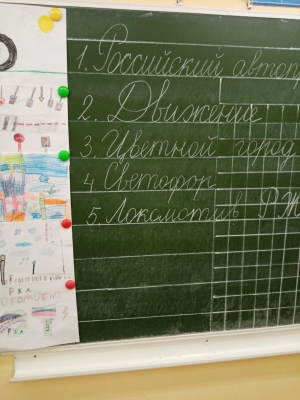 1. Российский автоп
2. Движение
3. Цветной город
4 Светофор
5. Локомотив РЖ
РЖД